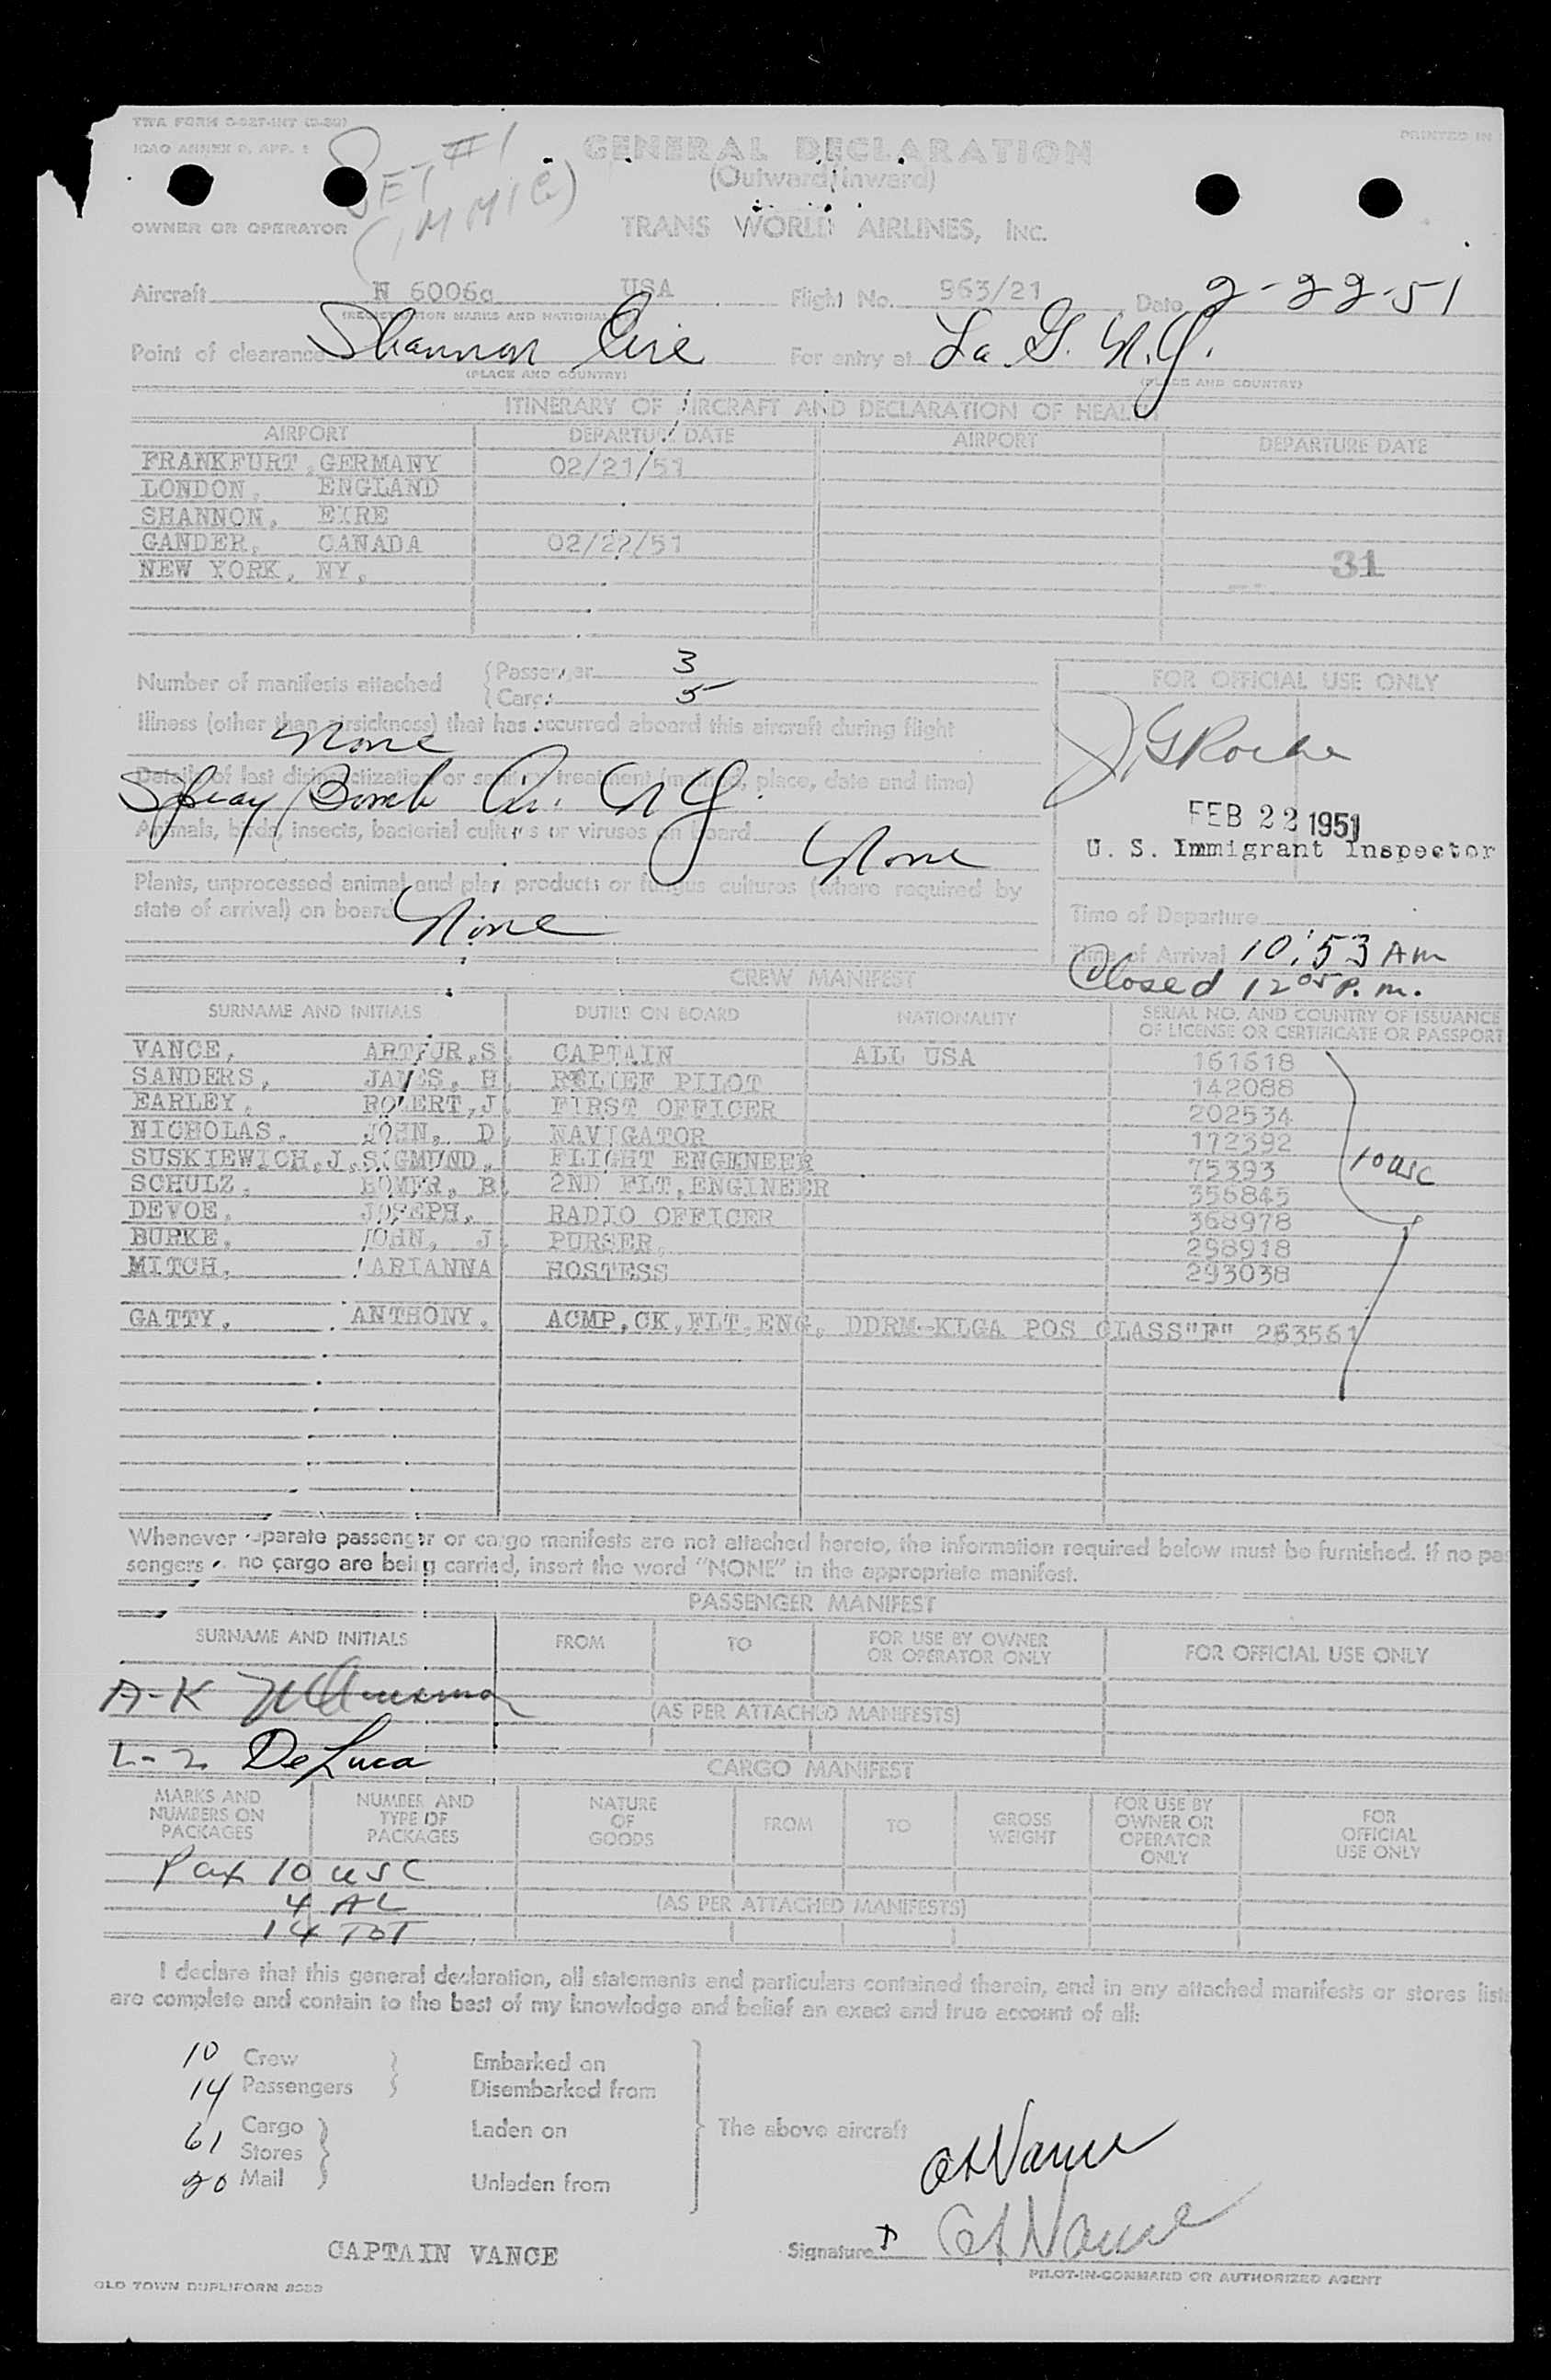 TWA FORM O-027-INT (3-50)
ICAO ANNEX 9, APP. 1
PRINTED IN
SET #1
(IMMIG)
GENERAL DECLARATION
(Outward/Inward)
OWNER OR OPERATOR TRANS WORLD AIRLINES, INC.
Aircraft N 6006c USA Flight No. 963/21 Date 2-22-51
(REGISTRATION MARKS AND NATIONALITY)
Point of clearance Shannon Eire For entry at La G. N.Y.
(PLACE AND COUNTRY) (PLACE AND COUNTRY)
ITINERARY OF AIRCRAFT AND DECLARATION OF HEALTH
AIRPORT DEPARTURE DATE AIRPORT DEPARTURE DATE
FRANKFURT, GERMANY 02/21/51
LONDON, ENGLAND
SHANNON, EIRE
GANDER, CANADA 02/22/51
NEW YORK, NY,
31
Number of manifests attached
Passenger 3
Cargo 5
FOR OFFICIAL USE ONLY
Illness (other than airsickness) that has occurred aboard this aircraft during flight
None
J. G Roche
Details of last disinsectization or sanitary treatment (method, place, date and time)
Spray Bomb Ar. N Y.
FEB 22 1951
U. S. Immigrant Inspector
Animals, birds, insects, bacterial cultures or viruses on board
None
Plants, unprocessed animal and plant products or fungus cultures (where required by
state of arrival) on board None
Time of Departure
Time of Arrival 10:53 Am
Closed 12 05 P. m.
CREW MANIFEST
SURNAME AND INITIALS DUTIES ON BOARD NATIONALITY SERIAL NO. AND COUNTRY OF ISSUANCE
OF LICENSE OR CERTIFICATE OR PASSPORT
VANCE, ARTHUR,S, CAPTAIN ALL USA 161618
SANDERS, JAMES, H, RELIEF PILOT 142088
EARLEY, ROBERT,J, FIRST OFFICER 202534
NICHOLAS, JOHN, D, NAVIGATOR 172392
SUSKIEWICH,J,SIGMUND, FLIGHT ENGENEER 75393
10 usc
SCHULZ, HOMER, B, 2ND FLT,ENGINEER 356845
DEVOE, JOSEPH, RADIO OFFICER 368978
BURKE, JOHN, J, PURSER, 298918
MITCH, MARIANNA HOSTESS 293038
GATTY, ANTHONY, ACMP,CK,FLT,ENG, DDRM--KLGA POS CLASS"F" 263561
Whenever separate passenger or cargo manifests are not attached hereto, the information required below must be furnished. If no pas
sengers or no cargo are being carried, insert the word "NONE" in the appropriate manifest.
PASSENGER MANIFEST
SURNAME AND INITIALS FROM TO FOR USE BY OWNER
OR OPERATOR ONLY FOR OFFICIAL USE ONLY
A-K
(AS PER ATTACHED MANIFESTS)
L-Z DeLuca
CARGO MANIFEST
MARKS AND
NUMBERS ON
PACKAGES
NUMBER AND
TYPE OF
PACKAGES
NATURE
OF
GOODS
FROM
TO
GROSS
WEIGHT
FOR USE BY
OWNER OR
OPERATOR
ONLY
FOR
OFFICIAL
USE ONLY
Pax 10 usc
4 AL
(AS PER ATTACHED MANIFESTS)
14 TOT
I declare that this general declaration, all statements and particulars contained therein, and in any attached manifests or stores list
are complete and contain to the best of my knowledge and belief an exact and true account of all:
10 Crew Embarked on
14 Passengers Disembarked from
61 Cargo Laden on The above aircraft
Stores
20 Mail Unladen from
AS Vance
CAPTAIN VANCE Signature AS Vance
PILOT-IN-COMMAND OR AUTHORIZED AGENT
OLD TOWN DUPLIFORM